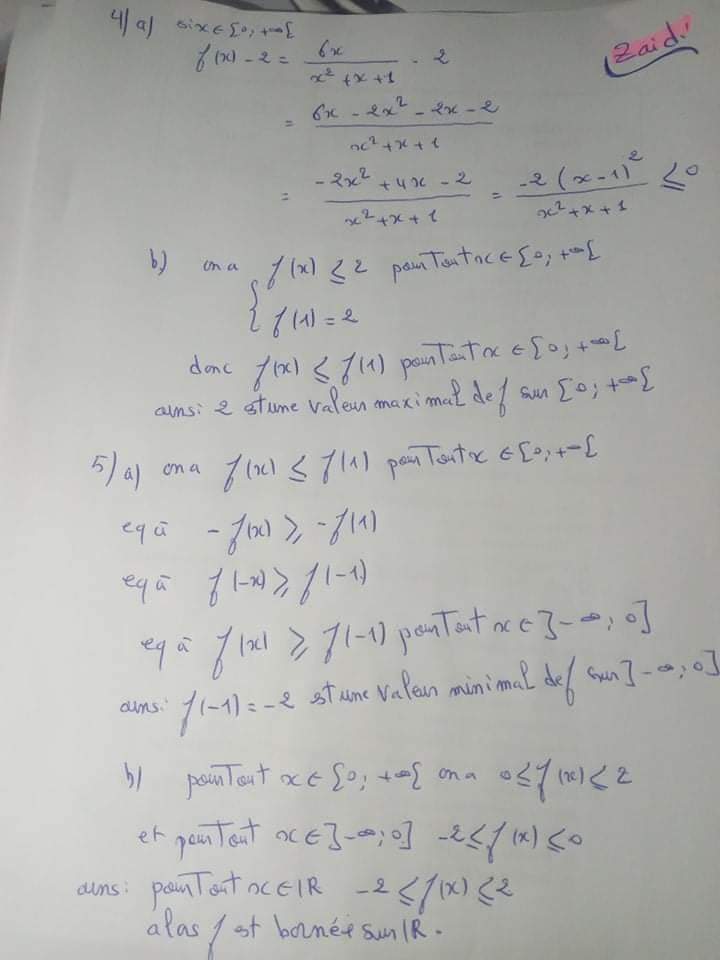 4/ a) si x ∈ [0; +∞[
Zaid.
f(x) - 2 = 6x / (x² + x + 1) - 2
= (6x - 2x² - 2x - 2) / (x² + x + 1)
= (-2x² + 4x - 2) / (x² + x + 1) = -2(x - 1)² / (x² + x + 1) ≤ 0
b) on a { f(x) ≤ 2 pour tout x ∈ [0; +∞[
f(1) = 2
donc f(x) ≤ f(1) pour tout x ∈ [0; +∞[
ainsi 2 est une valeur maximal de f sur [0; +∞[
5/ a) on a f(x) ≤ f(1) pour tout x ∈ [0; +∞[
eq à - f(x) ≥ - f(1)
eq à f(-x) ≥ f(-1)
eq à f(x) ≥ f(-1) pour tout x ∈ ]-∞; 0]
ainsi f(-1) = -2 est une valeur minimal de f sur ]-∞; 0]
b) pour tout x ∈ [0; +∞[ on a 0 ≤ f(x) ≤ 2
et pour tout x ∈ ]-∞; 0] -2 ≤ f(x) ≤ 0
ainsi pour tout x ∈ IR -2 ≤ f(x) ≤ 2
alas f est bornée sur IR.